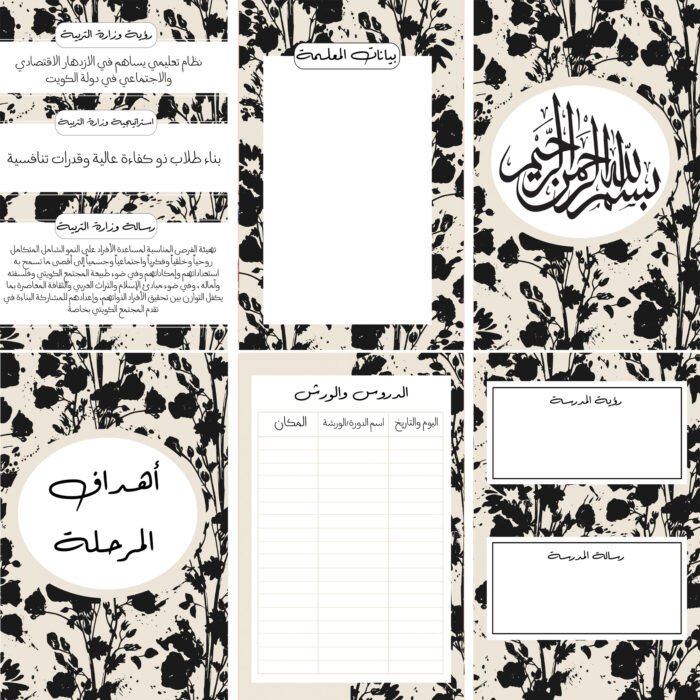 بسم الله الرحمن الرحيم
بيانات المعلمة
رؤية وزارة التربية
نظام تعليمي يساهم في الازدهار الاقتصادي
والاجتماعي في دولة الكويت
استراتيجية وزارة التربية
بناء طلاب ذو كفاءة عالية وقدرات تنافسية
رسالة وزارة التربية
تهيئة الفرص المناسبة لمساعدة الأفراد على النمو الشامل المتكامل
روحياً وخلقياً وفكرياً واجتماعياً وجسمياً إلى أقصى ما تسمح به
استعداداتهم وإمكاناتهم وفي ضوء طبيعة المجتمع الكويتي وفلسفته
وآماله ، وفي ضوء مبادئ الإسلام والتراث العربي والثقافة المعاصرة بما
يكفل التوازن بين تحقيق الأفراد لذواتهم، وإعدادهم للمشاركة البناءة في
تقدم المجتمع الكويتي بخاصة
رؤية المدرسة
رسالة المدرسة
الدروس والورش
اليوم والتاريخ اسم الدورة/الورشة المكان
أهداف
المرحلة